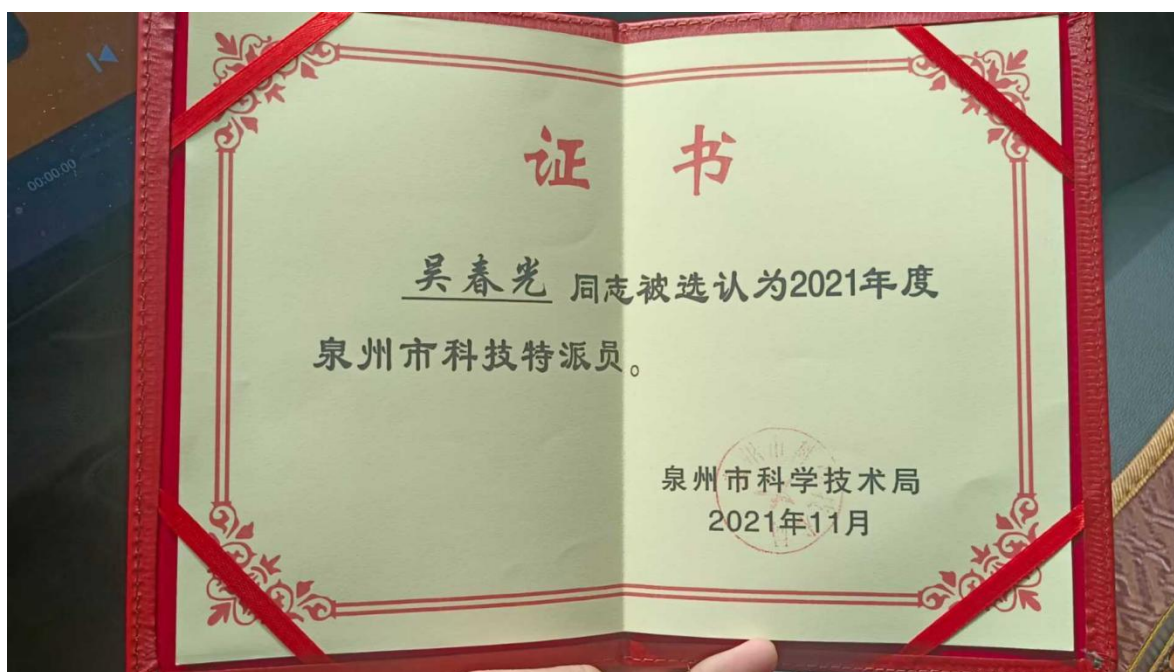 00:00.00
证 书
吴春光 同志被选认为2021年度
泉州市科技特派员。
泉州市科学技术局
2021年11月